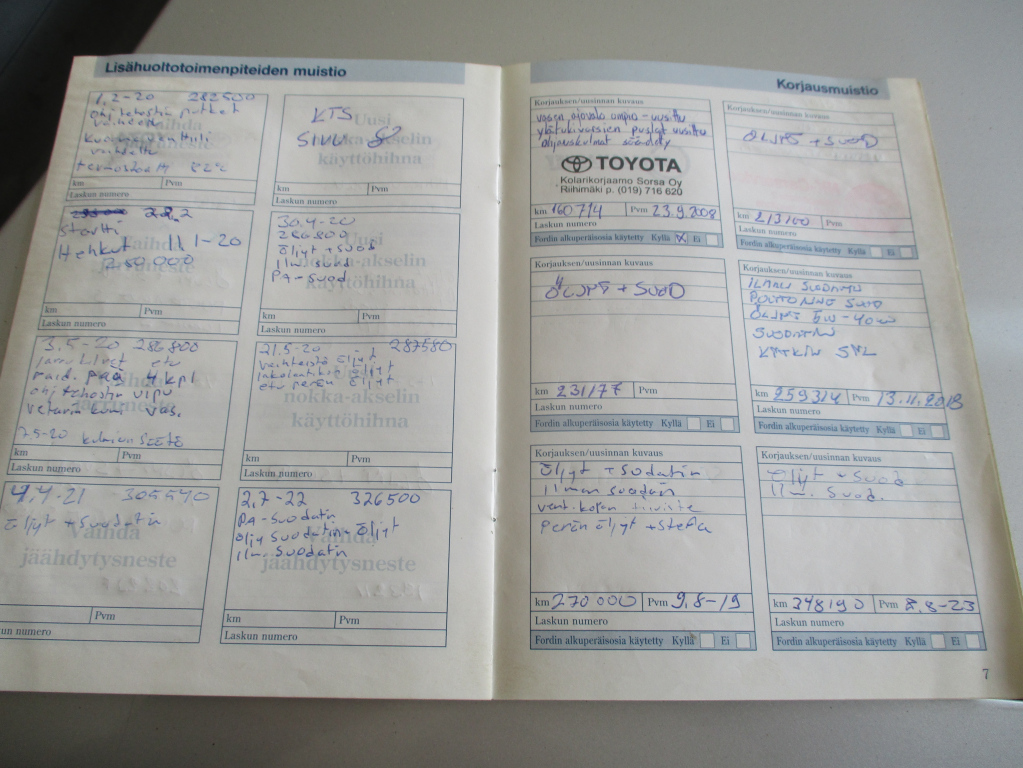 Lisähuoltotoimenpiteiden muistio
1.2-20 282500
ohj. tehostin putket
vaihdettu
termostaatti 82°c
km Pvm
Laskun numero
KTS
SIVU 8
Uusi
nokka-akselin
käyttöhihna
km Pvm
Laskun numero
282
Startti
Hehkut 11.1-20
250.000
km Pvm
Laskun numero
30.4-20
286800
öljyt + suod
ilm. suod
PA-suod.
Uusi
nokka-akselin
käyttöhihna
km Pvm
Laskun numero
3.5-20 286800
4 kpl
ohj tehostin
vas.
7.5-20
km Pvm
Laskun numero
21.5-20 287580
vaihteisto öljyt
jakolaatikko öljyt
etu perän öljyt
nokka-akselin
käyttöhihna
km Pvm
Laskun numero
4.4-21 305540
öljyt + suodatin
Vaihda
jäähdytysneste
km Pvm
Laskun numero
2.7-22 326500
PA-suodatin
öljy suodatin + öljyt
ilm. suodatin
Vaihda
jäähdytysneste
km Pvm
Laskun numero
Korjausmuistio
Korjauksen/uusinnan kuvaus
uusittu
ylätukivarsien puslat uusittu
ohjauskulmat säädetty
TOYOTA
Kolarikorjaamo Sorsa Oy
Riihimäki p. (019) 716 620
km 160714 Pvm 23.9.2008
Laskun numero
Fordin alkuperäisosia käytetty Kyllä X Ei
Korjauksen/uusinnan kuvaus
ÖLJYT + SUOD
km 213100 Pvm
Laskun numero
Fordin alkuperäisosia käytetty Kyllä Ei
Korjauksen/uusinnan kuvaus
ÖLJYT + SUOD
km 231177 Pvm
Laskun numero
Fordin alkuperäisosia käytetty Kyllä Ei
Korjauksen/uusinnan kuvaus
ILMAN SUODATIN
POLTTOAINE SUOD
ÖLJYT 5W-40
SUODATIN
km 259314 Pvm 13.11.2018
Laskun numero
Fordin alkuperäisosia käytetty Kyllä Ei
Korjauksen/uusinnan kuvaus
Öljyt + suodatin
ilman suodatin
vent. kopan tiiviste
perän öljyt + stefa
km 270000 Pvm 9.8-19
Laskun numero
Fordin alkuperäisosia käytetty Kyllä Ei
Korjauksen/uusinnan kuvaus
öljyt + suod
ilm. suod.
km 348190 Pvm 8.8-23
Laskun numero
Fordin alkuperäisosia käytetty Kyllä Ei
7